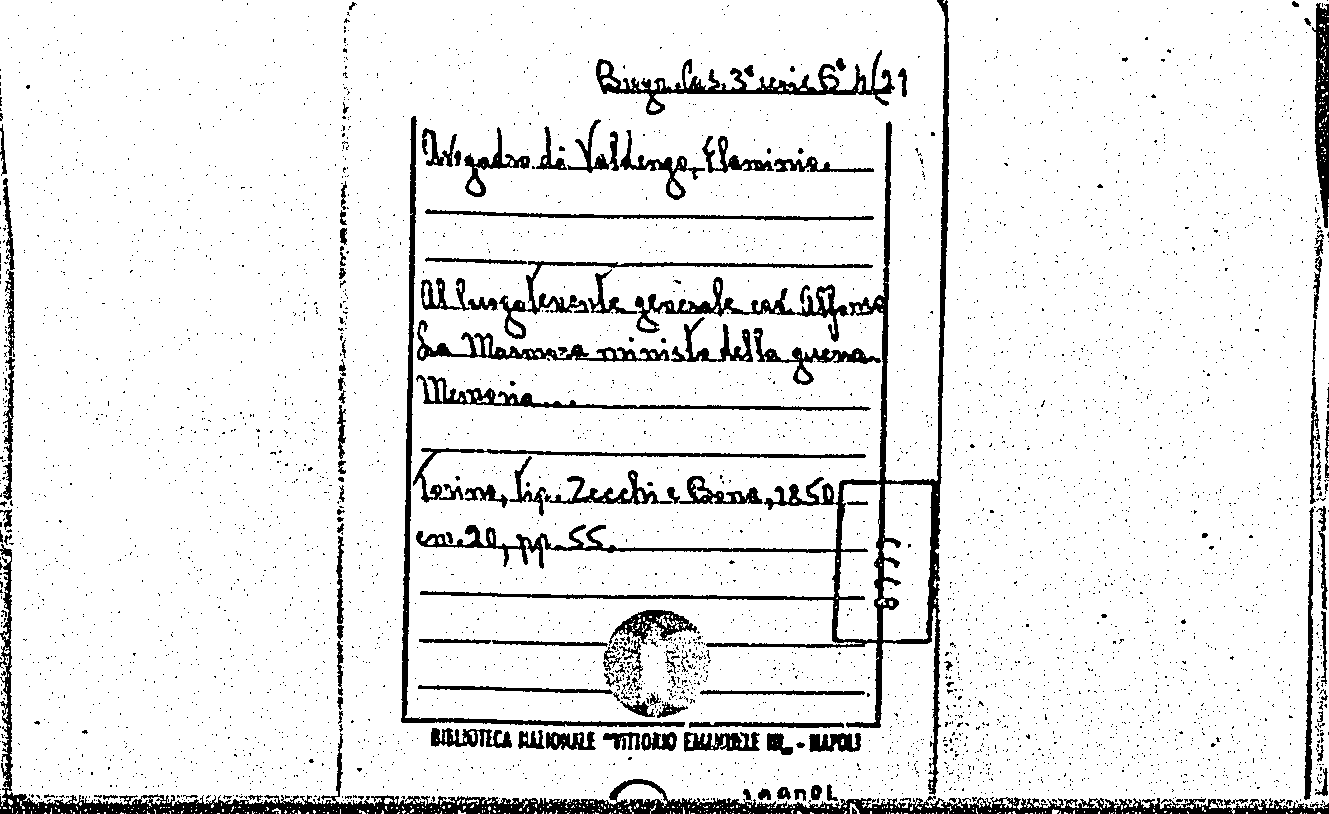 Birga. Cas. 3ª serie 6ª h(21
Avogadro di Valdengo, Flaminio.
Al luogotenente generale cav. Alfonso
La Marmora ministro della guerra.
Memoria...
Torino, tip. Zecchi e Bona, 1850
cm. 20, pp. 55.
BIBLIOTECA NAZIONALE "VITTORIO EMANUELE III„ - NAPOLI